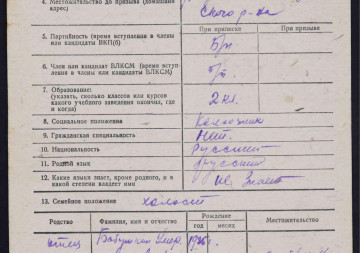 4. Местожительство до призыва (домашний
адрес)
ского р-на
При приписке
При призыве
5. Партийность (время вступления в члены
или кандидаты ВКП(б)
б/п
6. Член или кандидат ВЛКСМ (время вступ-
ления в члены или кандидаты ВЛКСМ)
7. Образование:
(указать, сколько классов или курсов
какого учебного заведения окончил, где
и когда)
2 кл.
8. Социальное положение
Колхозник
9. Гражданская специальность
Нет.
10. Национальность
русский
11. Родной язык
русский
12. Какие языки знает, кроме родного, и в
какой степени владеет ими
не знает
13. Семейное положение
холост
Родство
Фамилия, имя и отчество
Рождение
Местожительство
год
месяц
отец